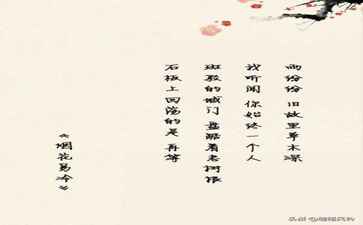 雨纷纷 旧故里草木深
我听闻 你始终一个人
斑驳的城门 盘踞着老树根
石板上回荡的是 再等
《烟花易冷》